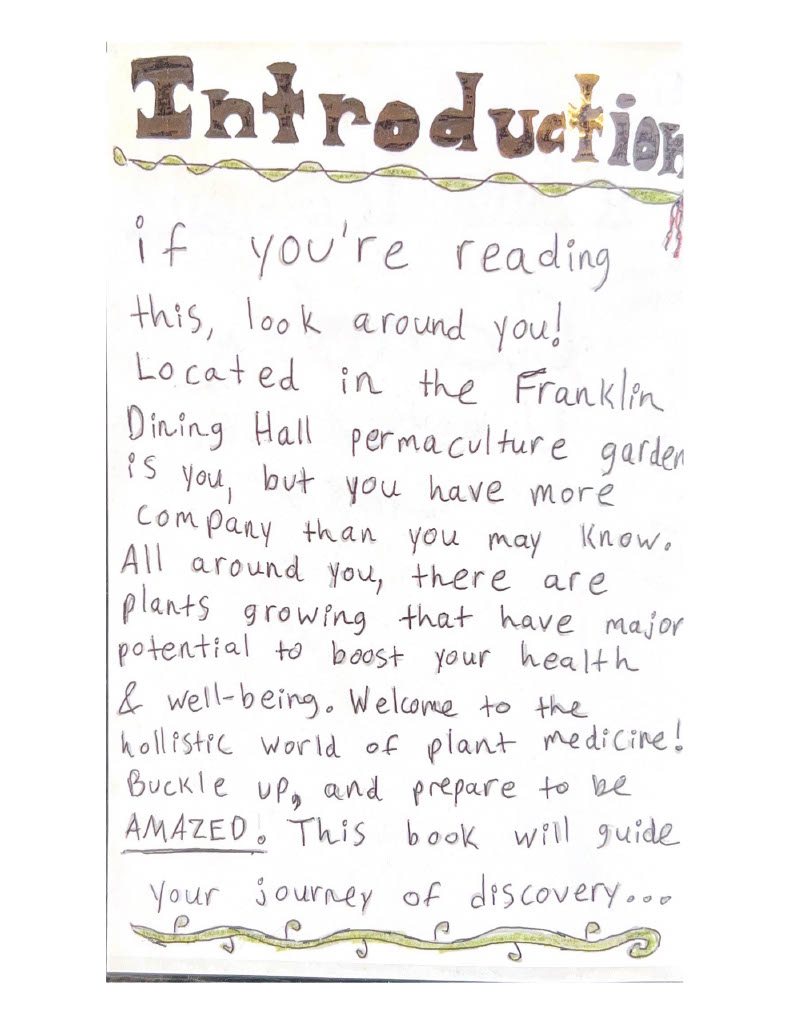 Introduction
if you're reading
this, look around you!
Located in the Franklin
Dining Hall permaculture garden
is you, but you have more
company than you may know.
All around you, there are
plants growing that have major
potential to boost your health
& well-being. Welcome to the
hollistic world of plant medicine!
Buckle up, and prepare to be
AMAZED. This book will guide
your journey of discovery...